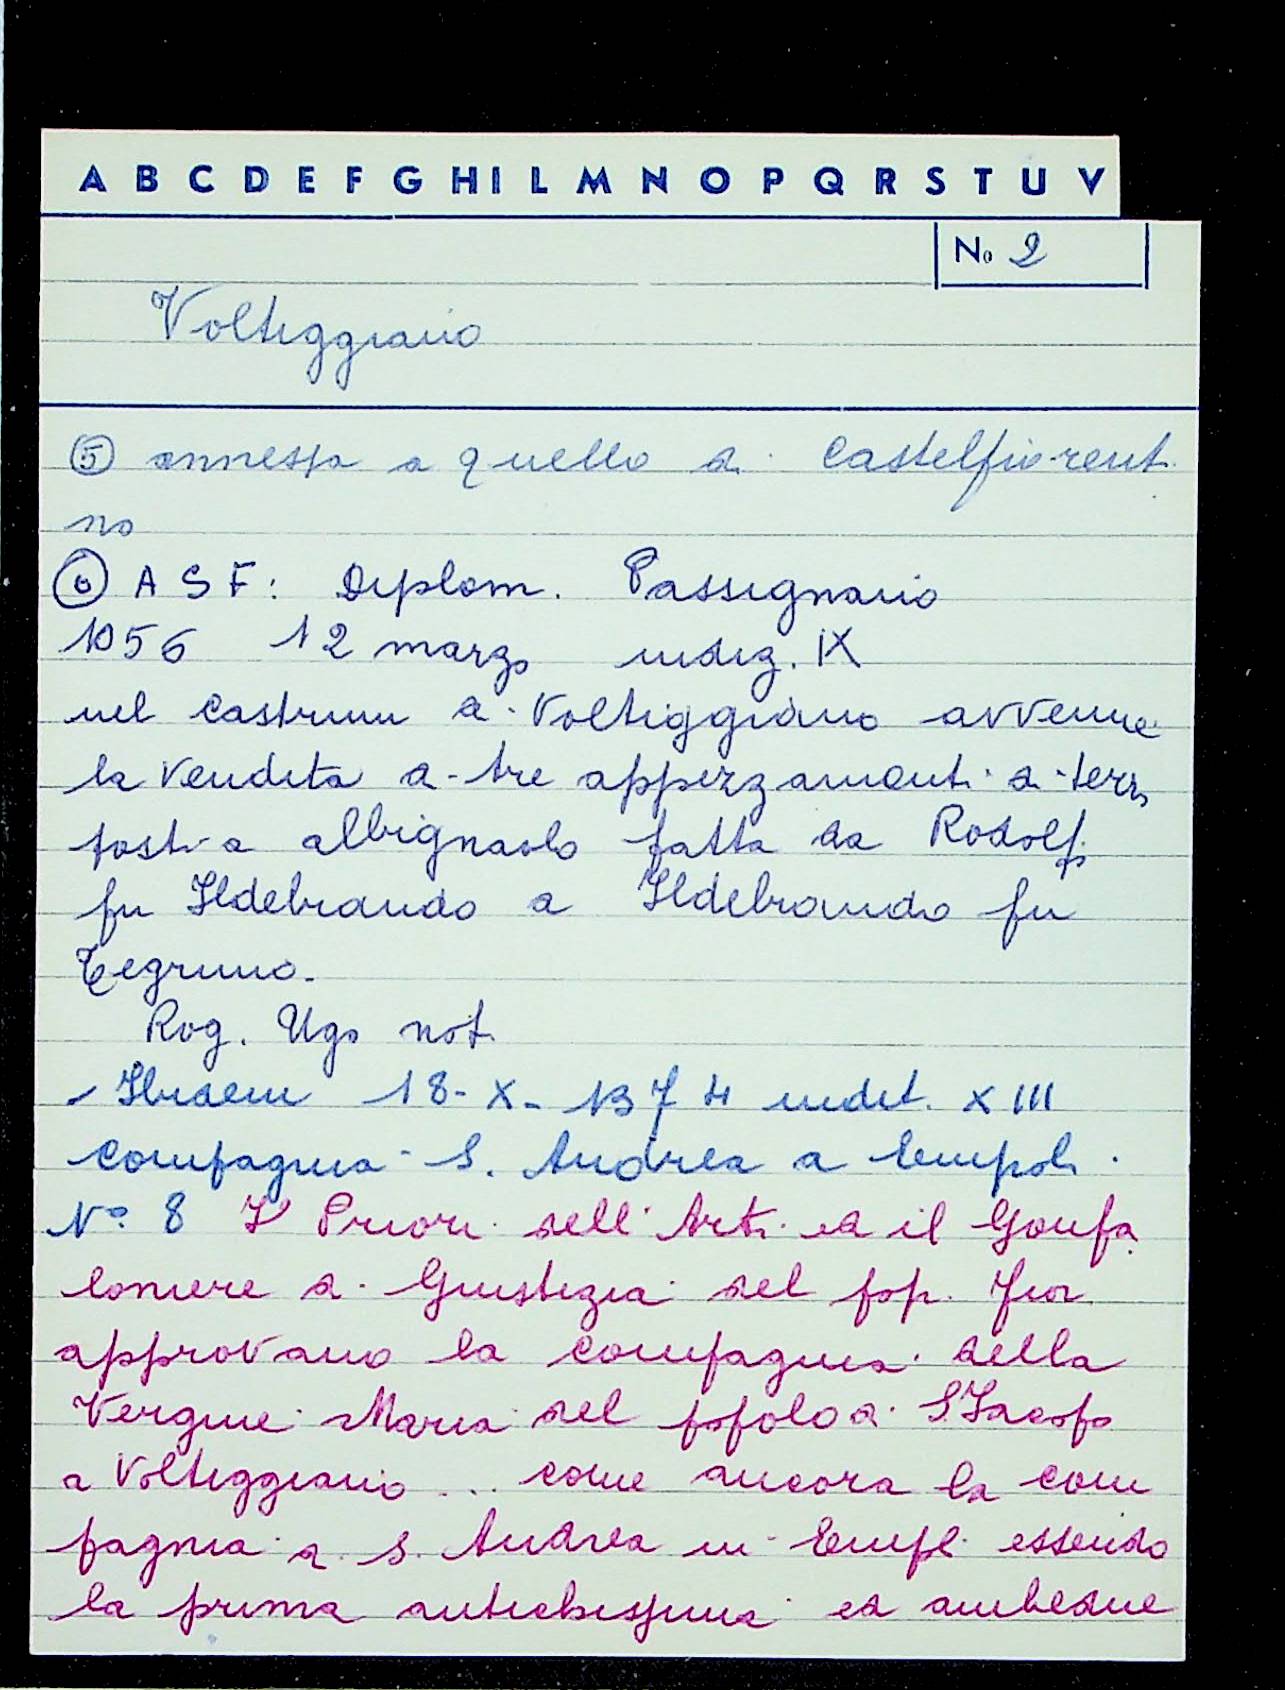 A B C D E F G H I L M N O P Q R S T U V
No 2
Voltiggiano
⑤ annessa a quello di Castelfiorenti
no
⑥ A S F: Diplom. Passignano
1056 12 marzo indiz. IX
nel castrum di Voltiggiano avvenne
la vendita di tre appezzamenti di terra
posti a albignaolo fatta da Rodolfo
fu Ildebrando a Ildebrando fu
Tegrimo.
Rog. Ugo not.
- Ibidem 18-X-1374 indit. XIII
compagnia S. Andrea a Empoli.
N° 8 I Priori dell'Arti ed il Gonfa
loniere di Giustizia del pop. fior.
approvano la compagnia della
Vergine Maria del popolo di S. Jacopo
a Voltiggiano ... come ancora la com
pagnia di S. Andrea in Empl. essendo
la prima antichissima ed ambedue